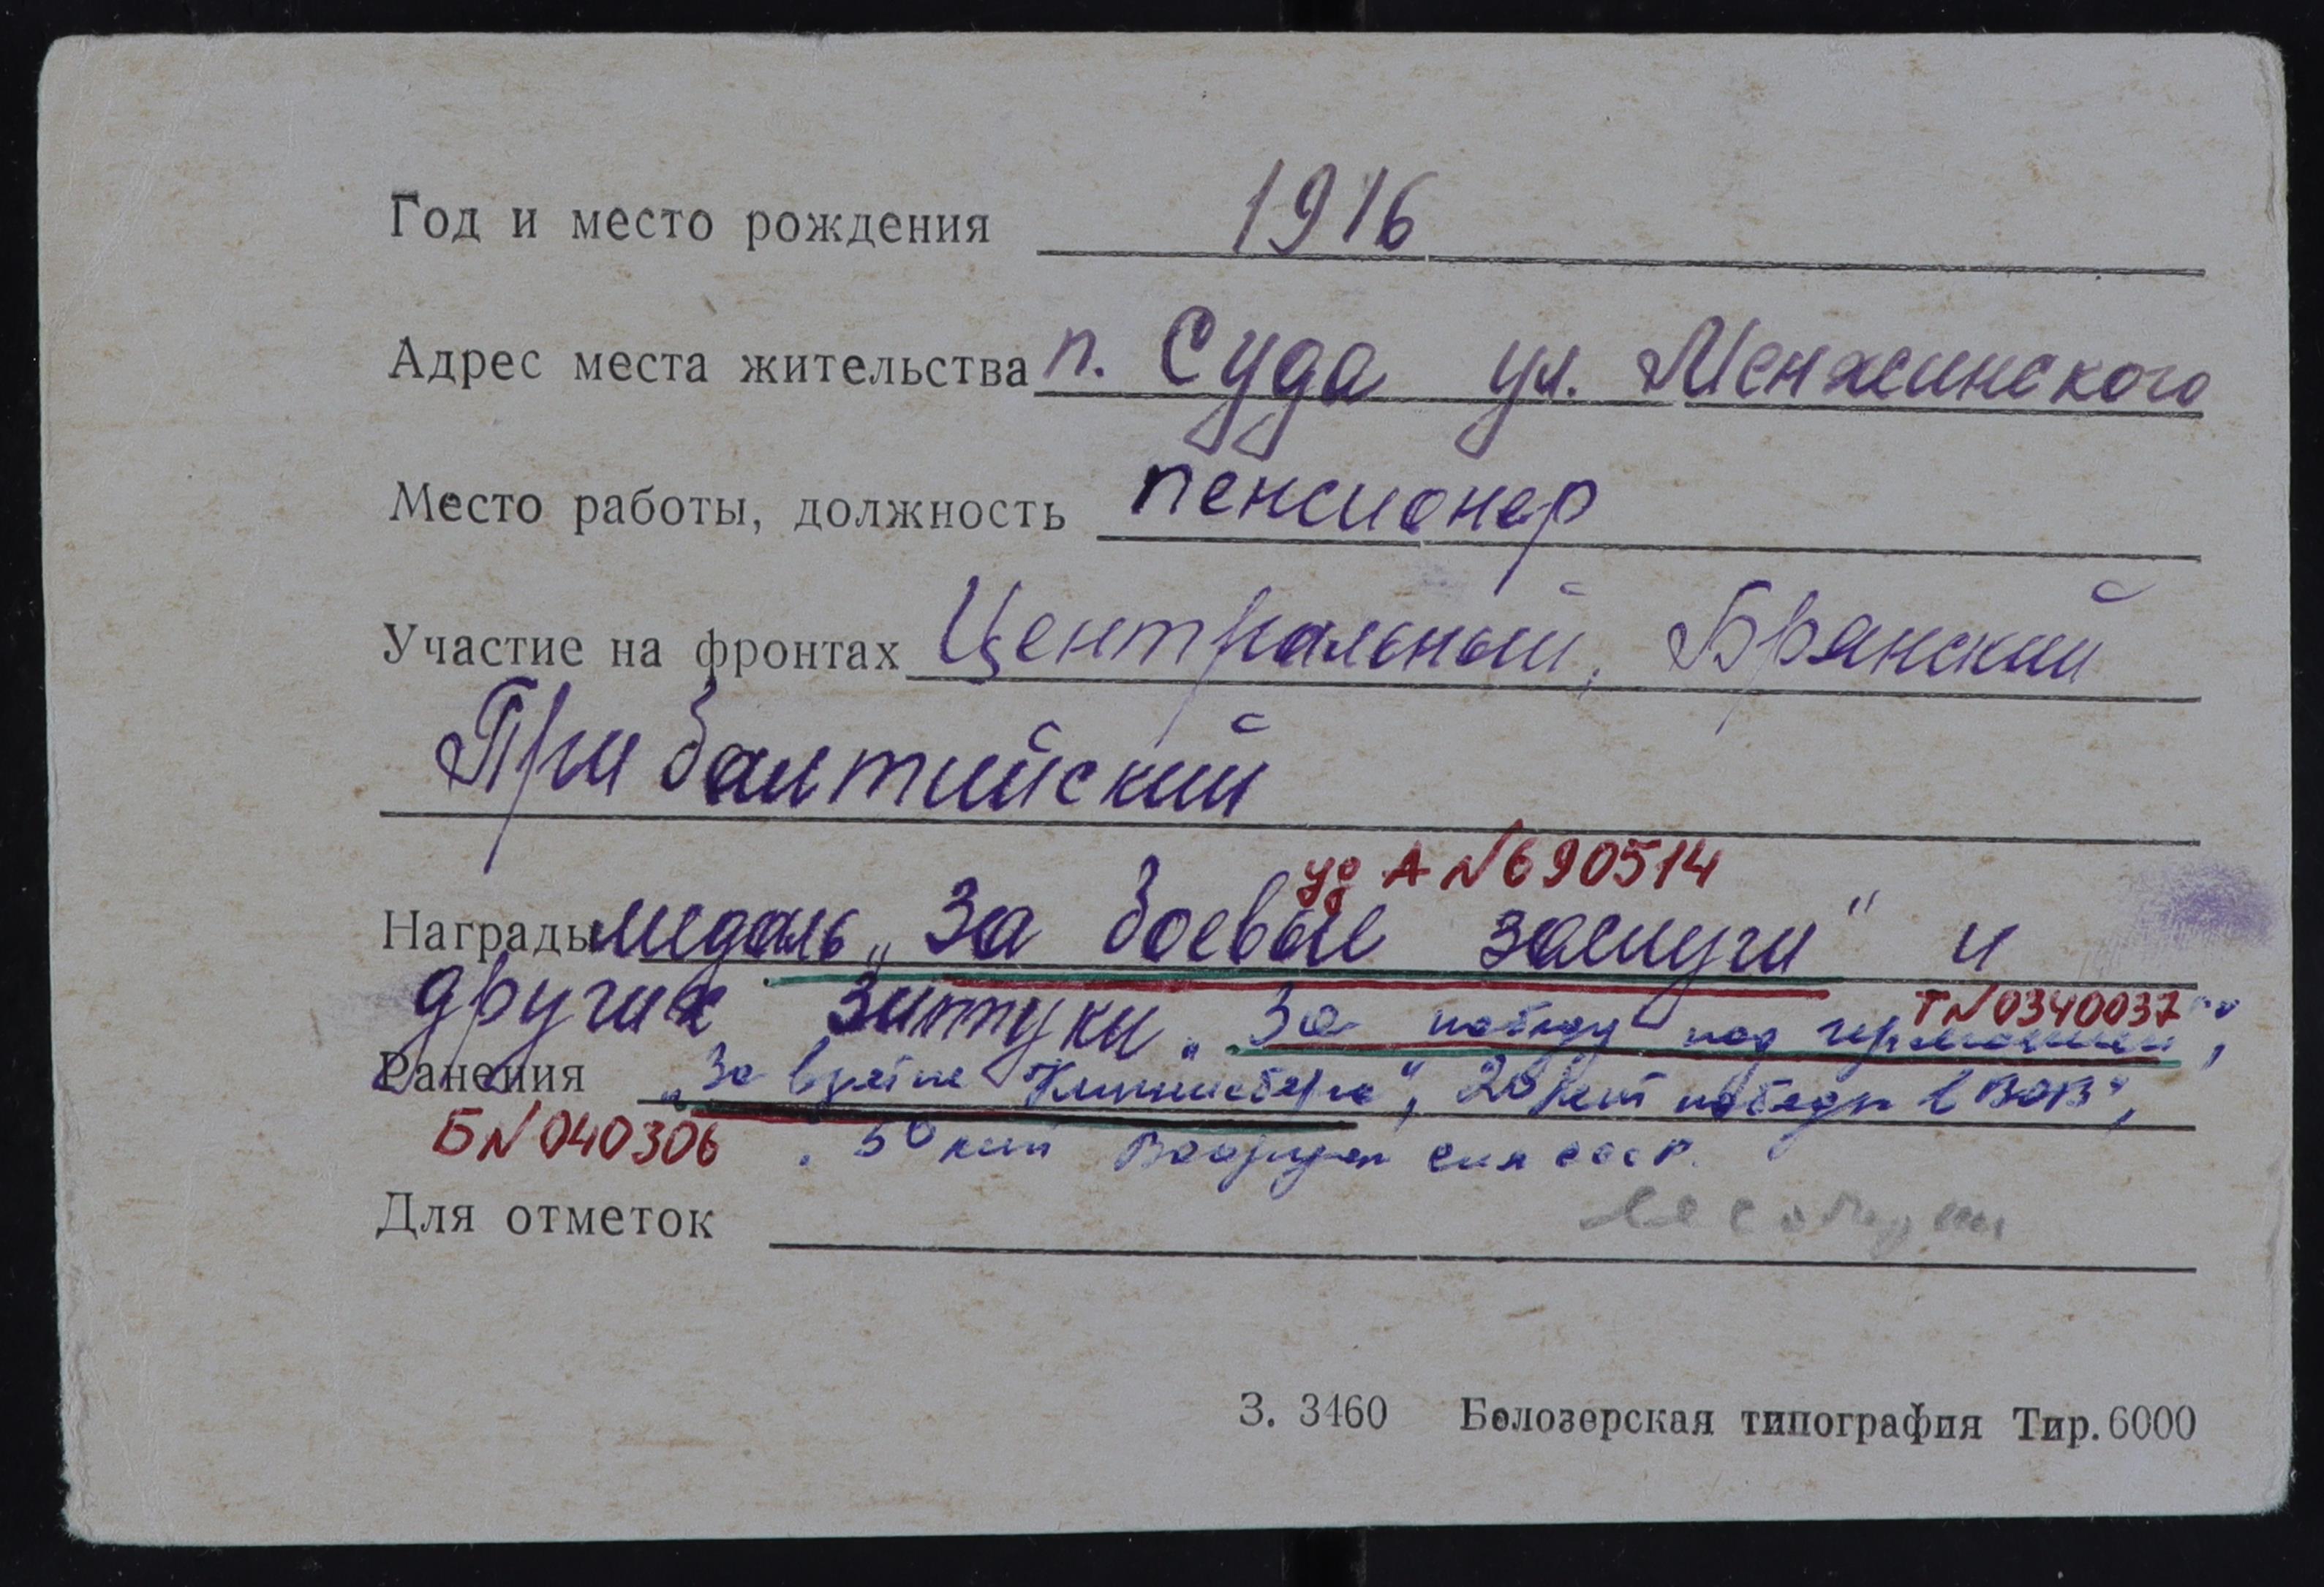 Год и место рождения 1916
Адрес места жительства п. Суда ул. Менжинского
Место работы, должность пенсионер
Участие на фронтах Центральный, Брянский
Прибалтийский
уд А №690514
Награды медаль „За боевые заслуги" и
других 3 штуки
Т №0340037
„За победу над германией",
Ранения „За взятие Кинигсберга", 20 лет победы в ВОВ",
Б №040306 50 лет Вооружен сил СССР.
Для отметок
З. 3460 Белозерская типография Тир. 6000